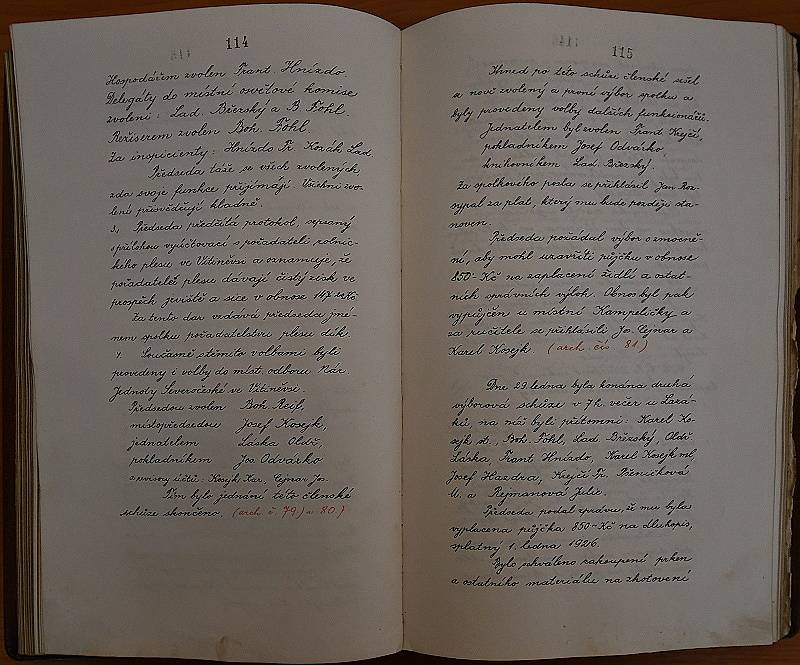 114
Hospodářem zvolen Frant. Hnízdo.
Delegáty do místní osvětové komise
zvoleni: Lad. Březský a B. Föhl.
Režiserem zvolen Boh. Föhl.
Za inspicienty: Hnízdo Fr. Kozák Lad.
Předseda táže se všech zvolených,
zda svoje funkce přijímají. Všichni zvo-
lení přisvědčují kladně.
3. Předseda předčítá protokol, sepsaný
s přílohou vyúčtovací s pořadateli rolnic-
kého plesu ve Vitiněvsi a oznamuje, že
pořadatelé plesu dávají čistý zisk ve
prospěch jeviště a sice v obnose 147·22 Kč
Za tento dar vzdává předseda jmé-
nem spolku pořadatelstvu plesu dík.
4. Současně s těmito volbami byli
provedeny i volby do míst. odboru Nár.
Jednoty Severočeské ve Vitiněvsi.
Předsedou zvolen Boh. Reif,
místopředsedou Josef Kosejk,
jednatelem Láska Oldř.,
pokladníkem Jos. Odvárko
a revisory účtů: Kosejk Kar., Cejnar Jos.
Tím bylo jednání této členské
schůze skončeno. (arch. č. 79) a 80)
115
Ihned po této schůzi členské sešel
se nově zvolený a první výbor spolku a
byly provedeny volby dalších funkcionářů.
Jednatelem byl zvolen Frant. Krejčí,
pokladníkem Josef Odvárko,
knihovníkem Lad. Březský.
Za spolkového posla se přihlásil Jan Roz-
sypal za plat, který mu bude později sta-
noven.
Předseda požádal výbor o zmocně-
ní, aby mohl uzavříti půjčku v obnose
850- Kč na zaplacení židlí a ostat-
ních správních výloh. Obnos byl pak
vypůjčen u místní Kampeličky a
za ručitele se přihlásili Jos. Cejnar a
Karel Kosejk. (arch. čís. 81.)
Dne 29. ledna byla konána druhá
výborová schůze v 7 h. večer u Lazá-
ků, na níž byli přítomni: Karel Ko-
sejk st., Boh. Föhl, Lad. Březský, Oldř.
Láska, Frant. Hnízdo, Karel Kosejk ml.,
Josef Hazdra, Krejčí Fr. Pšeničková
M. a Rejmanová Julie.
Předseda podal zprávu, že mu byla
vyplacena půjčka 850- Kč na dlužopis,
splatný 1. ledna 1926.
Bylo schváleno zakoupení prken
a ostatního materiálu na zhotovení